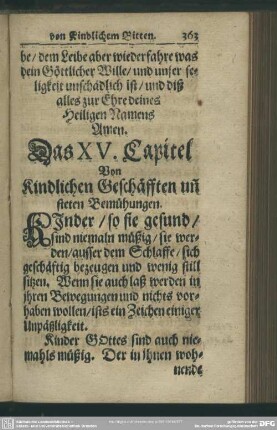 von Kindlichem Bitten. 363
be / dem Leibe aber wiederfahre was
dein Göttlicher Wille / und unser se-
ligkeit unschädlich ist / und diß
alles zur Ehre deines
Heiligen Namens
Amen.
Das XV. Capitel
Von
Kindlichen Geschäfften uñ
steten Bemühungen.
KInder / so sie gesund /
sind niemaln müßig / sie wer-
den / ausser dem Schlaffe / sich
geschäftig bezeugen und wenig still
sitzen. Wenn sie auch laß werden in
ihren Bewegungen und nichts vor-
haben wollen / ists ein Zeichen einiger
Unpäßligkeit.
Kinder GOttes sind auch nie-
mahls müßig. Der in ihnen woh-
nende